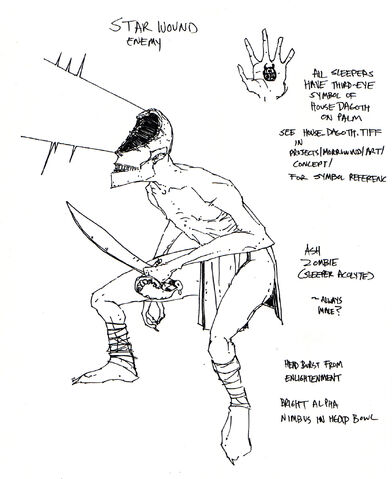 STAR WOUND
ENEMY
ALL SLEEPERS
HAVE THIRD-EYE
SYMBOL OF
HOUSE DAGOTH
ON PALM
SEE HOUSE DAGOTH.TIFF
IN
PROJECTS/MORROWIND/ART/
CONCEPT/
FOR SYMBOL REFERENC
ASH
ZOMBIE
(SLEEPER ACOLYTE)
~ALWAYS
MALE?
HEAD BURST FROM
ENLIGHTENMENT
BRIGHT ALPHA
NIMBUS IN HEAD BOWL